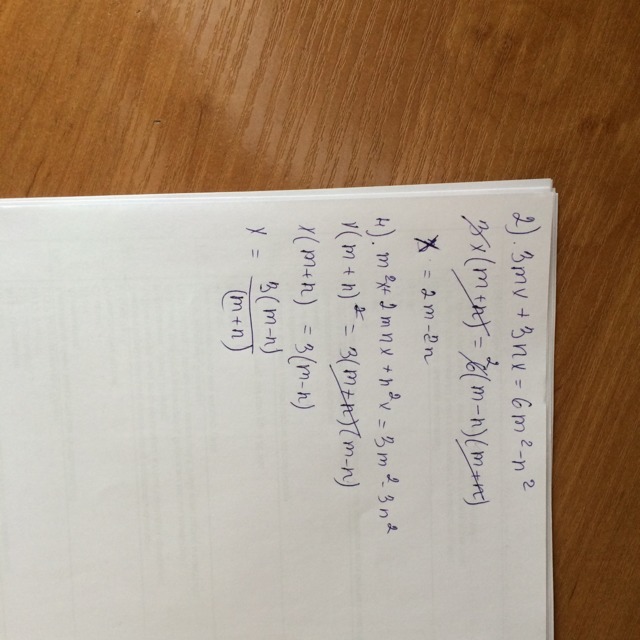 2). 3mx + 3nx = 6m² - n²
3x(m+n) = 26(m-n)(m+n)
x = 2m-2n
4). m²x + 2mnx + n²x = 3m² - 3n²
x(m+n)² = 3(m+n)(m-n)
x(m+n) = 3(m-n)
x = 3(m-n)/(m+n)